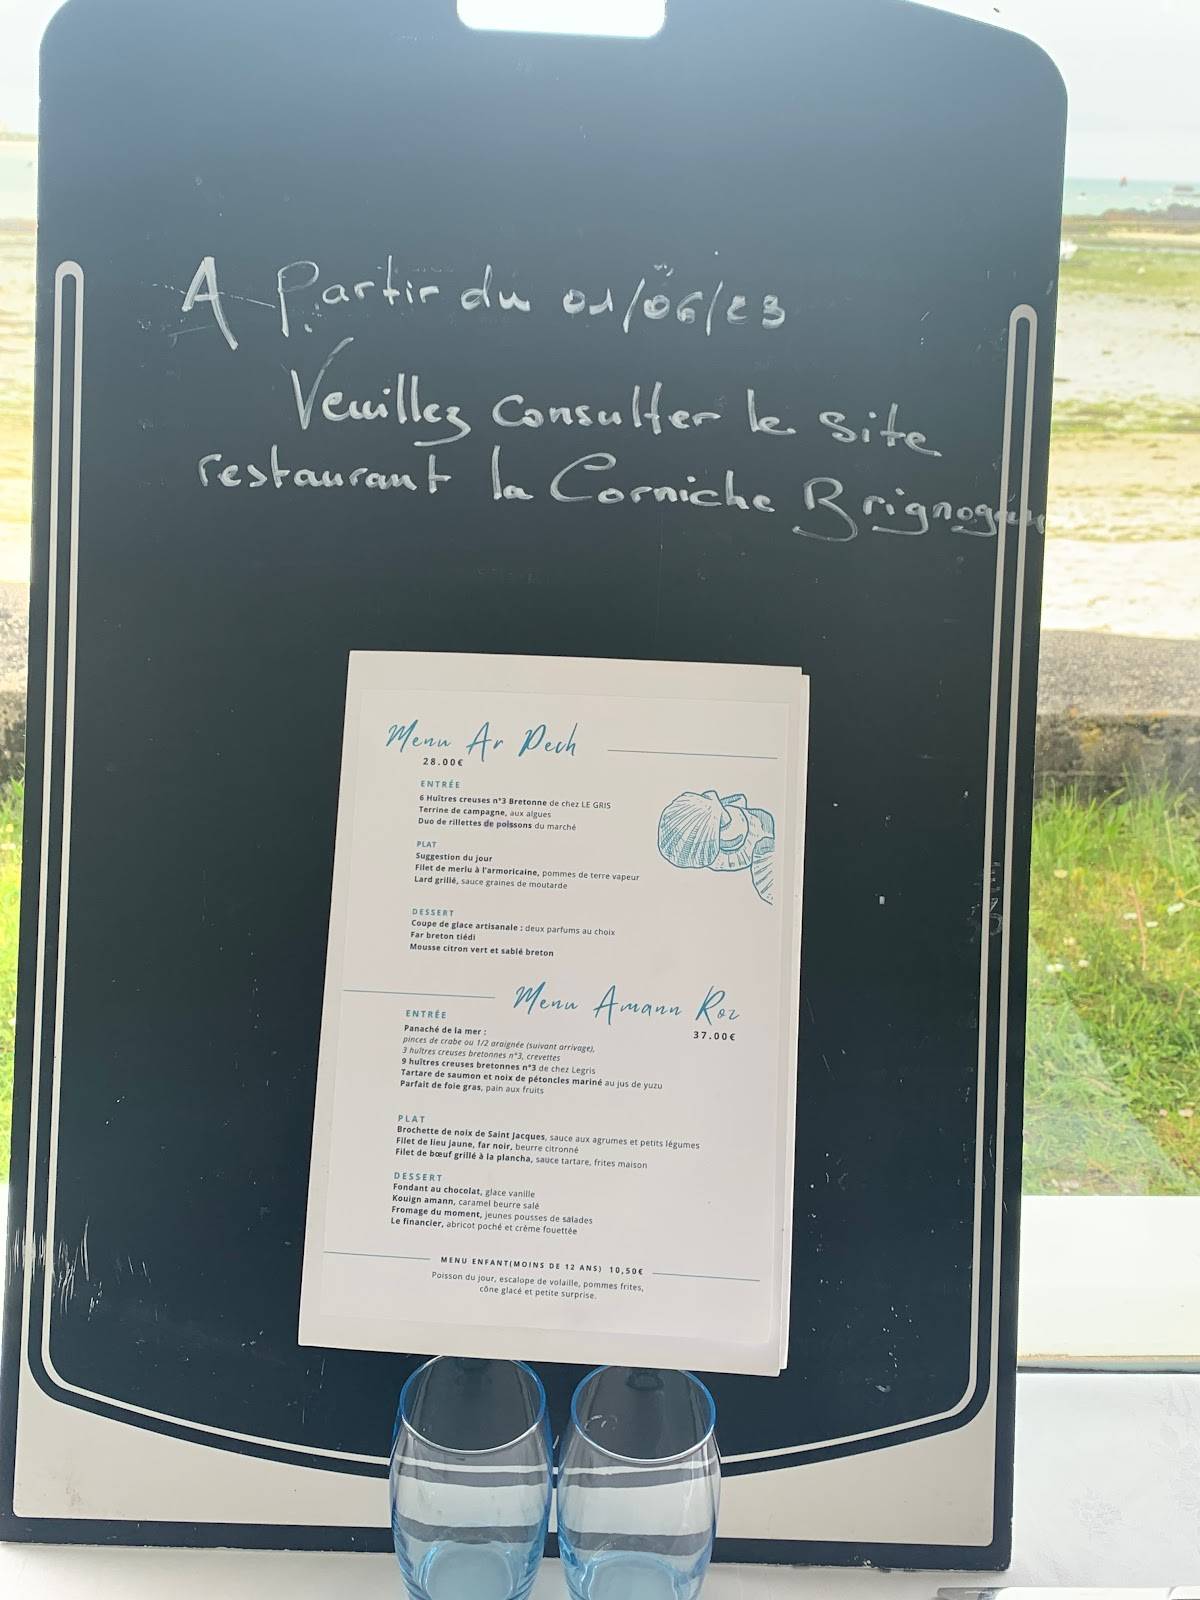 A Partir du 01/06/23
Veuillez consulter le site
restaurant la Corniche Brignogan
Menu Ar Pech
28.00€
ENTRÉE
6 Huîtres creuses n°3 Bretonne de chez LE GRIS
Terrine de campagne, aux algues
Duo de rillettes de poissons du marché
PLAT
Suggestion du jour
Filet de merlu à l'armoricaine, pommes de terre vapeur
Lard grillé, sauce graines de moutarde
DESSERT
Coupe de glace artisanale : deux parfums au choix
Far breton tiédi
Mousse citron vert et sablé breton
Menu Amann Roz
37.00€
ENTRÉE
Panaché de la mer :
pinces de crabe ou 1/2 araignée (suivant arrivage),
3 huîtres creuses bretonnes n°3, crevettes
9 huîtres creuses bretonnes n°3 de chez Legris
Tartare de saumon et noix de pétoncles mariné au jus de yuzu
Parfait de foie gras, pain aux fruits
PLAT
Brochette de noix de Saint Jacques, sauce aux agrumes et petits légumes
Filet de lieu jaune, far noir, beurre citronné
Filet de bœuf grillé à la plancha, sauce tartare, frites maison
DESSERT
Fondant au chocolat, glace vanille
Kouign amann, caramel beurre salé
Fromage du moment, jeunes pousses de salades
Le financier, abricot poché et crème fouettée
MENU ENFANT(MOINS DE 12 ANS) 10,50€
Poisson du jour, escalope de volaille, pommes frites,
cône glacé et petite surprise.